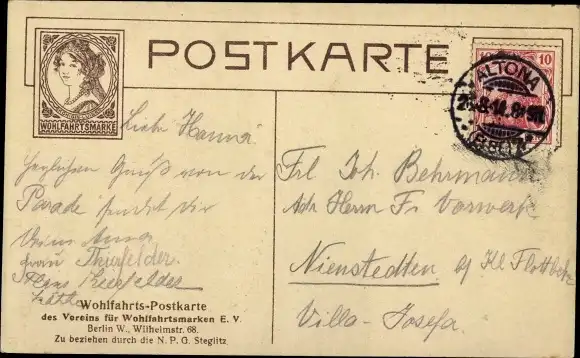 POSTKARTE
WOHLFAHRTSMARKE
10
ALTONA
Liebe Hanna
herzlichen Gruß von der
Parade sendet dir
Deine Anna
Frau Thurfelder
Wohlfahrts-Postkarte
des Vereins für Wohlfahrtsmarken E. V.
Berlin W., Wilhelmstr. 68.
Zu beziehen durch die N. P. G. Steglitz.
Frl. Joh. Behrmann
Adr Herrn Fr Vorwerk
Nienstedten b/ Kl Flottbek
Villa-Josefa.